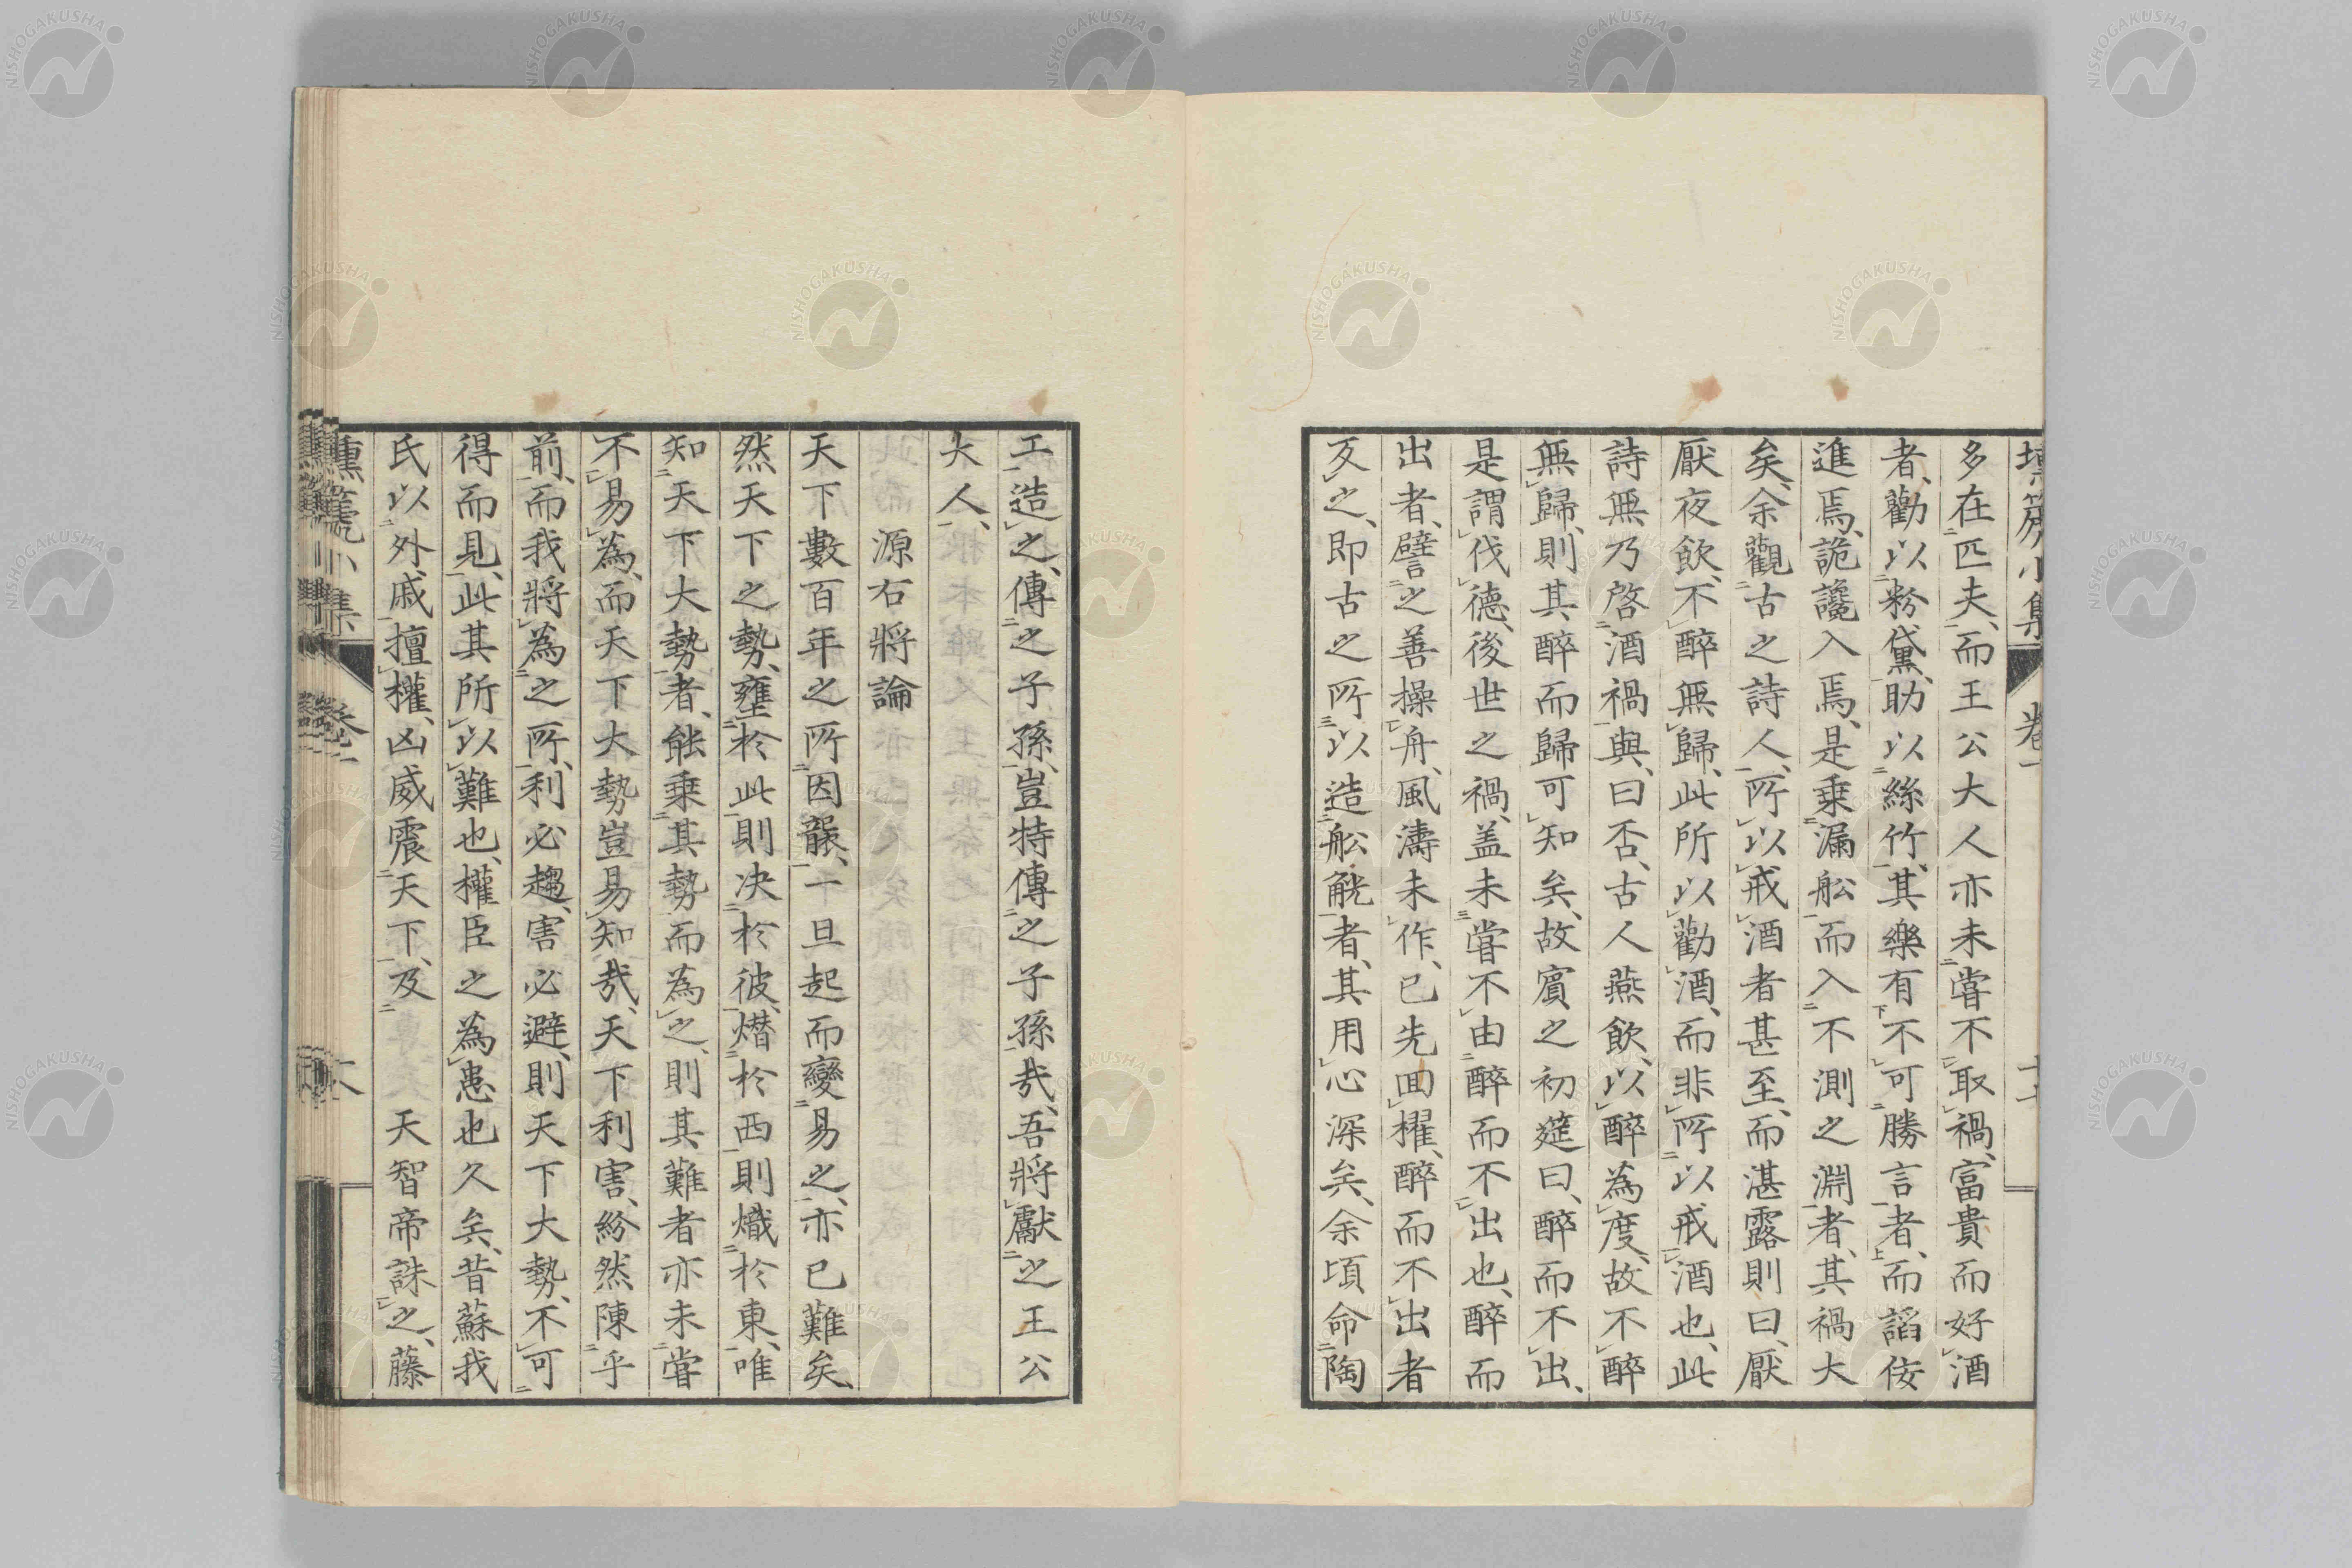 多在匹夫、而王公大人亦未嘗不取禍、富貴而好酒
者、勸以粉黛、助以絲竹、其樂有不可勝言者、而謟佞
進焉、詭讒入焉、是乗漏舩而入不測之淵者、其禍大
矣、余觀古之詩人、所以戒酒者甚至、而湛露則曰、厭
厭夜飲、不醉無歸、此所以勸酒、而非所以戒酒也、此
詩無乃啓酒禍與、曰否、古人燕飲、以醉為度、故不醉
無歸、則其醉而歸可知矣、故賓之初筵曰、醉而不出、
是謂伐德、後世之禍、盖未嘗不由醉而不出也、醉而
出者、譬之善操舟、風濤未作、已先回櫂、醉而不出者
反之、即古之所以造舩觥者、其用心深矣、余頃命陶
工造之、傳之子孫、豈特傳之子孫哉、吾將獻之王公
大人、
源右將論
天下數百年之所因襲、一旦起而變易之、亦已難矣、
然天下之勢、壅於此則决於彼、熸於西則熾於東、唯
知天下大勢者、能乗其勢而為之、則其難者亦未嘗
不易為、而天下大勢豈易知哉、天下利害、紛然陳乎
前、而我將為之所、利必趨、害必避、則天下大勢、不可
得而見、此其所以難也、權臣之為患也久矣、昔蘇我
氏以外戚擅權、凶威震天下、及 天智帝誅之、藤